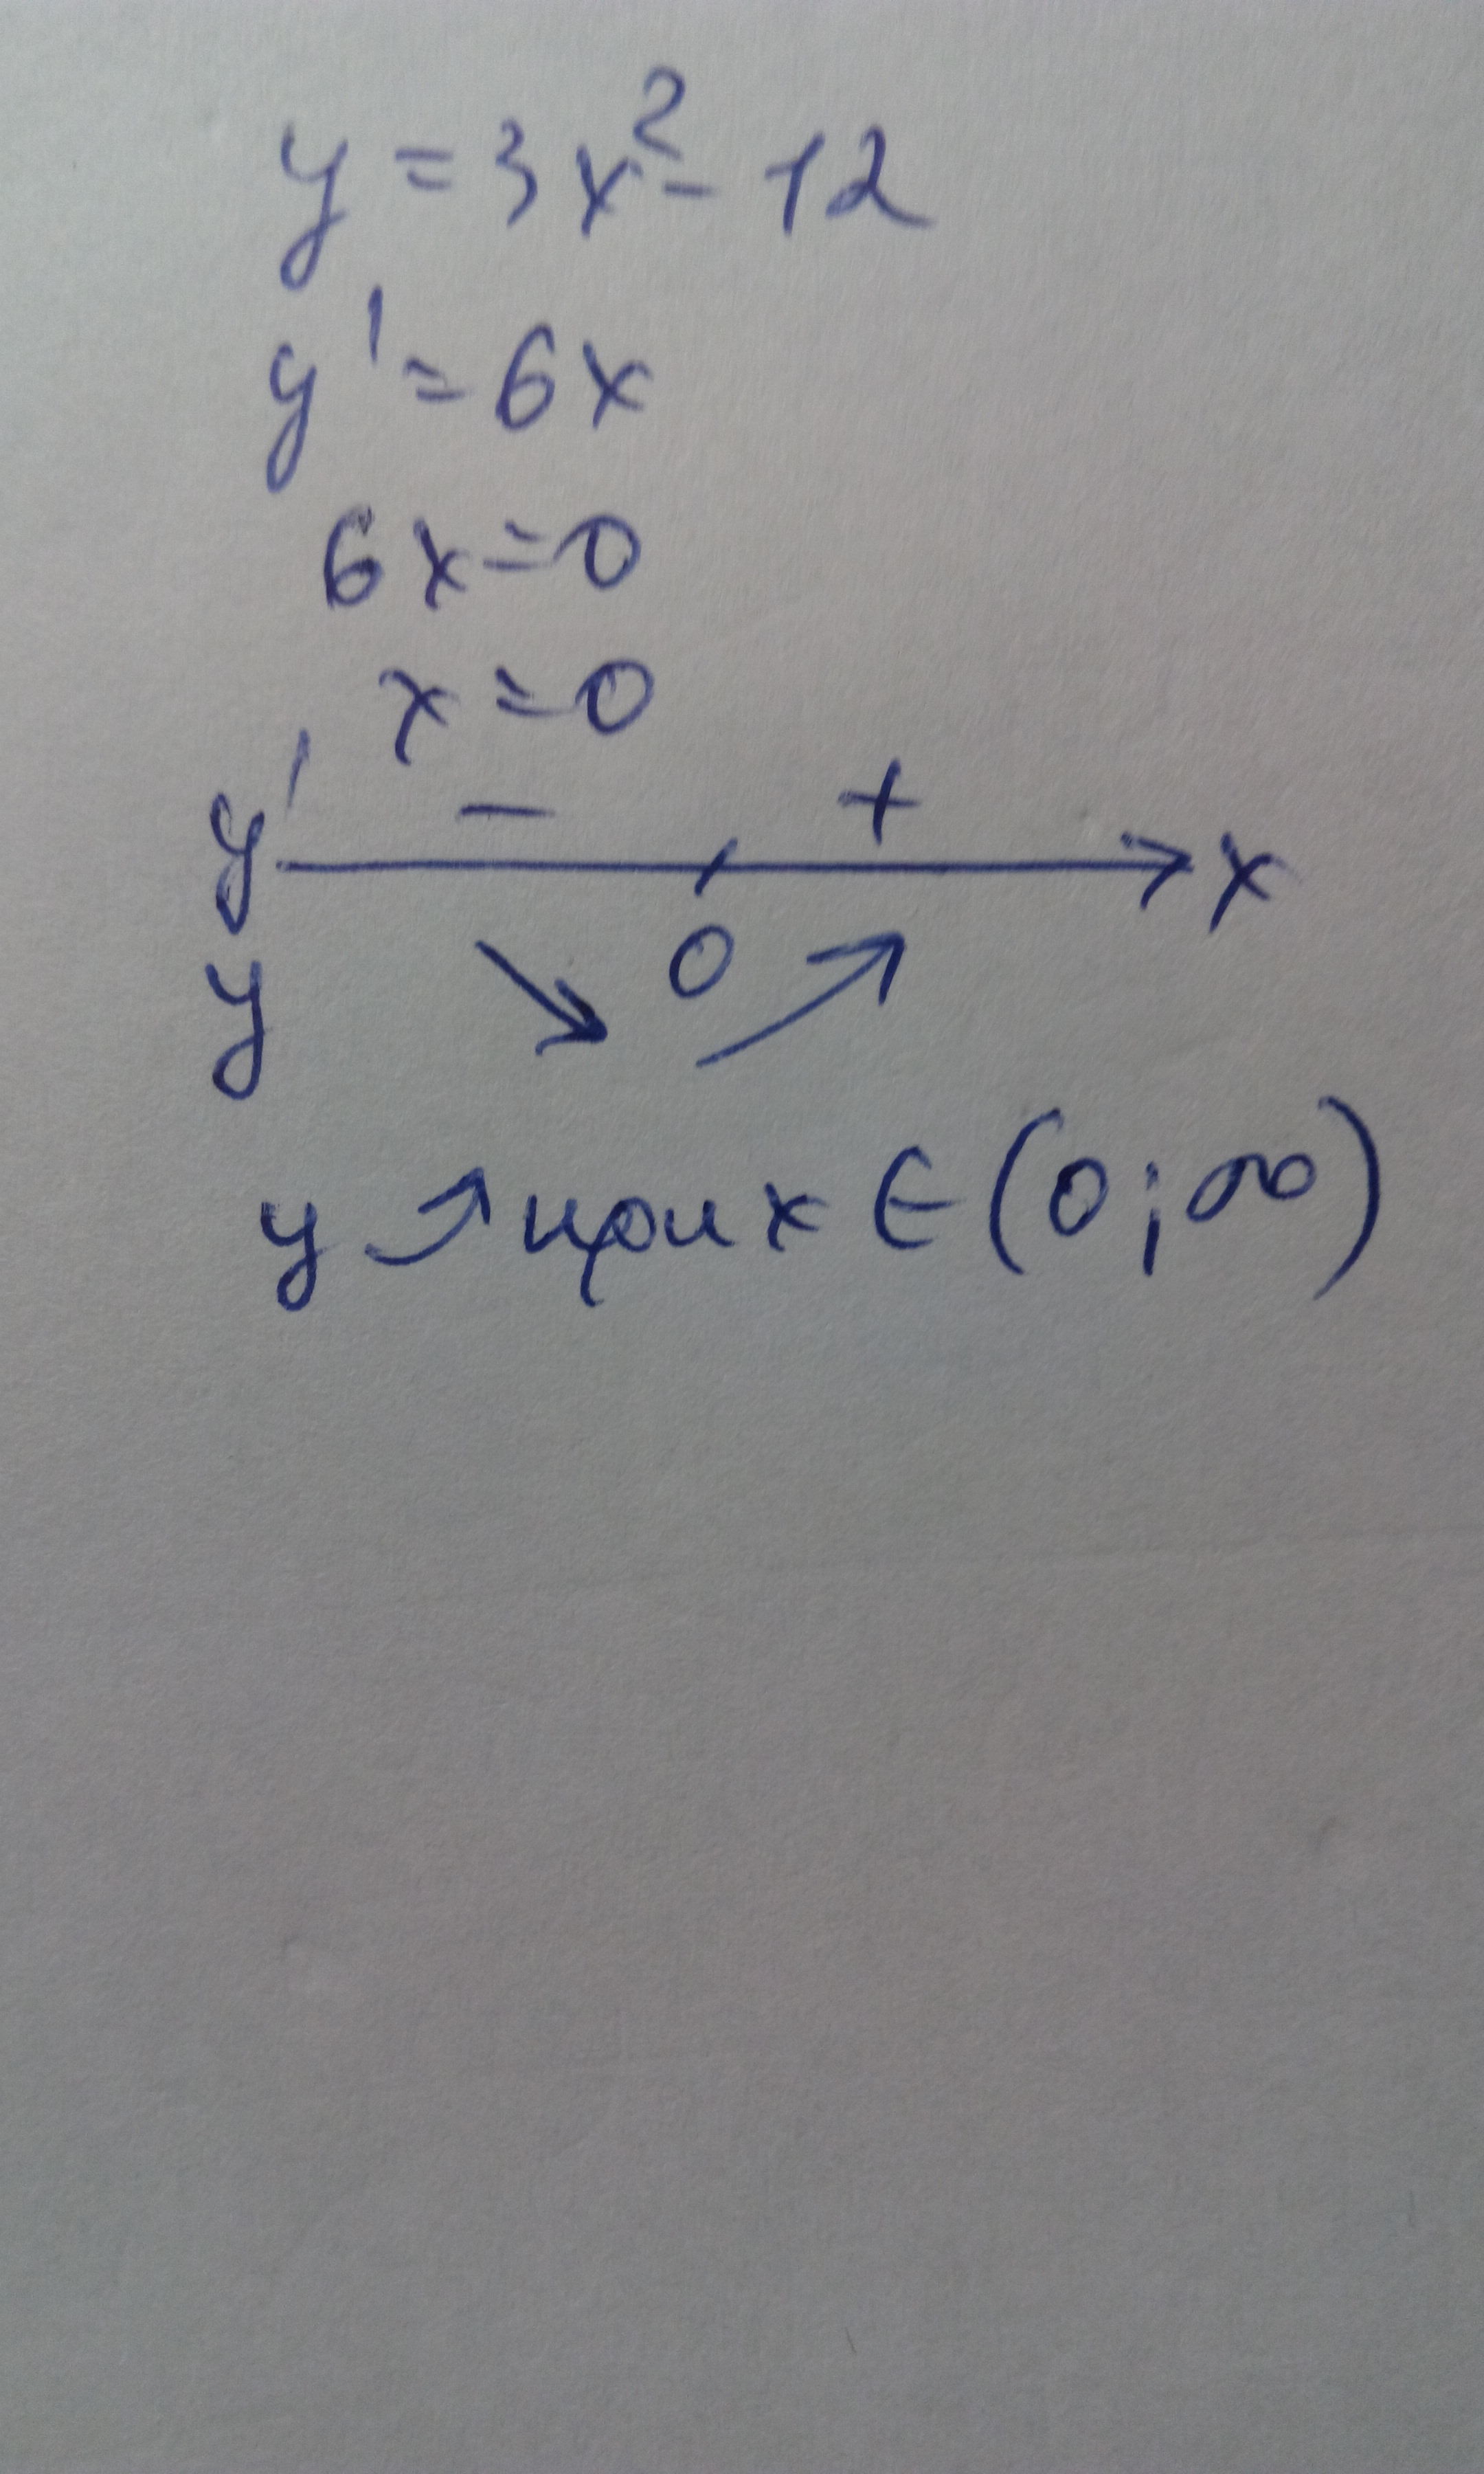 y = 3x² - 12
y' = 6x
6x = 0
x = 0
y' - + x
y 0
y ↗ при x ∈ (0; ∞)